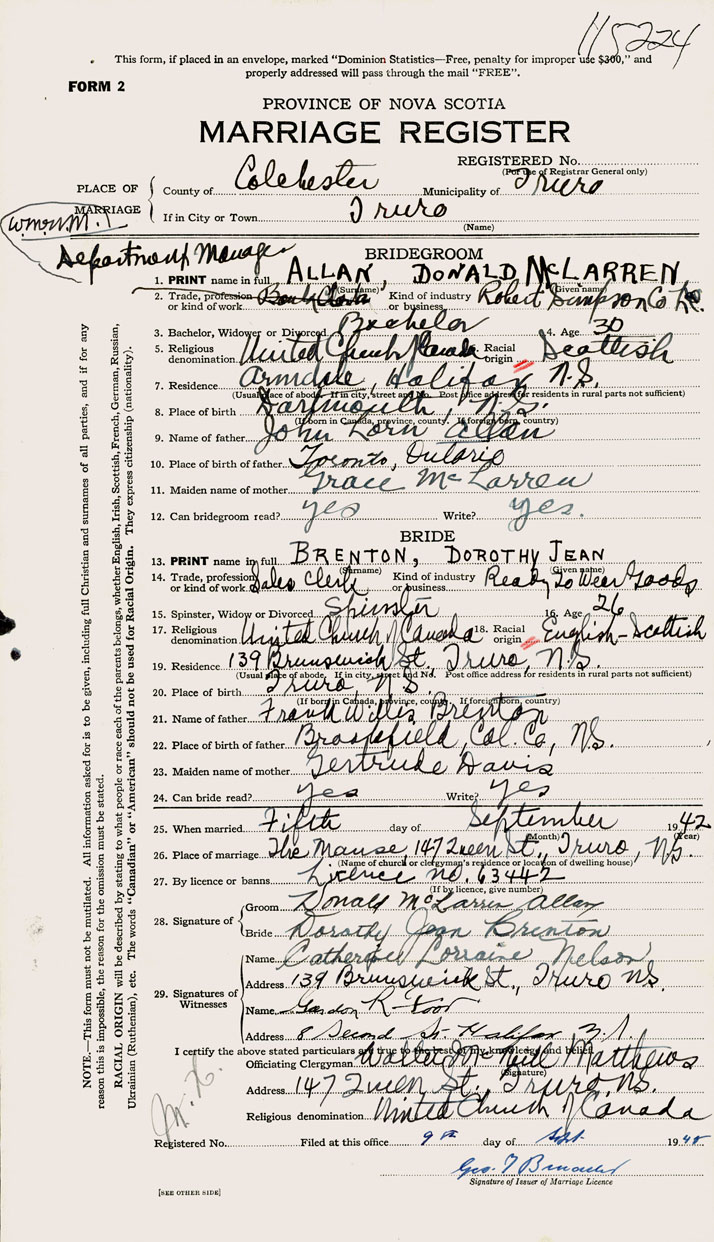 115224
This form, if placed in an envelope, marked "Dominion Statistics—Free, penalty for improper use $300," and
properly addressed will pass through the mail "FREE".
FORM 2
PROVINCE OF NOVA SCOTIA
MARRIAGE REGISTER
REGISTERED No.
(For use of Registrar General only)
PLACE OF MARRIAGE
County of Colchester Municipality of Truro
If in City or Town Truro
(Name)
Department Manager
BRIDEGROOM
1. PRINT name in full ALLAN, DONALD McLARREN
(Surname) (Given name)
2. Trade, profession or kind of work Bank Clerk Kind of industry or business Robert Simpson Co
3. Bachelor, Widower or Divorced Bachelor 4. Age 30
5. Religious denomination United Church of Canada 6. Racial origin Scottish
7. Residence Armdale, Halifax N.S.
(Usual place of abode. If in city, street and No. Post office address for residents in rural parts not sufficient)
8. Place of birth Dartmouth, N.S.
(If born in Canada, province, county. If foreign born, country)
9. Name of father John Lorn Allan
10. Place of birth of father Toronto, Ontario
11. Maiden name of mother Grace McLarren
12. Can bridegroom read? yes Write? yes.
BRIDE
13. PRINT name in full BRENTON, DOROTHY JEAN
(Surname) (Given name)
14. Trade, profession or kind of work Sales Clerk Kind of industry or business Ready to Wear Goods
15. Spinster, Widow or Divorced Spinster 16. Age 26
17. Religious denomination United Church of Canada 18. Racial origin English-Scottish
19. Residence 139 Brunswick St., Truro, N.S.
(Usual place of abode. If in city, street and No. Post office address for residents in rural parts not sufficient)
20. Place of birth Truro, N.S.
(If born in Canada, province, county. If foreign born, country)
21. Name of father Frank Willis Brenton
22. Place of birth of father Brookfield, Col. Co, N.S.
23. Maiden name of mother Gertrude Davis
24. Can bride read? yes Write? yes
25. When married Fifth day of September 1942
(Month) (Year)
26. Place of marriage The Manse, 147 Queen St., Truro, N.S.
(Name of church or clergyman's residence or location of dwelling house)
27. By licence or banns Licence no. 63442
(If by licence, give number)
28. Signature of Groom Donald McLarren Allan
Bride Dorothy Jean Brenton
29. Signatures of Witnesses
Name Catherine Lorraine Nelson
Address 139 Brunswick St., Truro N.S.
Name Gordon R
Address 8 Second St. Halifax N.S.
I certify the above stated particulars are true to the best of my knowledge and belief.
Officiating Clergyman Walter McNeill Matthews
(Signature)
Address 147 Queen St., Truro, N.S.
Religious denomination United Church of Canada
Registered No. Filed at this office 9th day of Sept 194
Geo.
Signature of Issuer of Marriage Licence
[SEE OTHER SIDE]
NOTE.—This form must not be mutilated. All information asked for is to be given, including full Christian and surnames of all parties, and if for any
reason this is impossible, the reason for the omission must be stated.
RACIAL ORIGIN will be described by stating to what people or race each of the parents belongs, whether English, Irish, Scottish, French, German, Russian,
Ukrainian (Ruthenian), etc. The words "Canadian" or "American" should not be used for Racial Origin. They express citizenship (nationality).